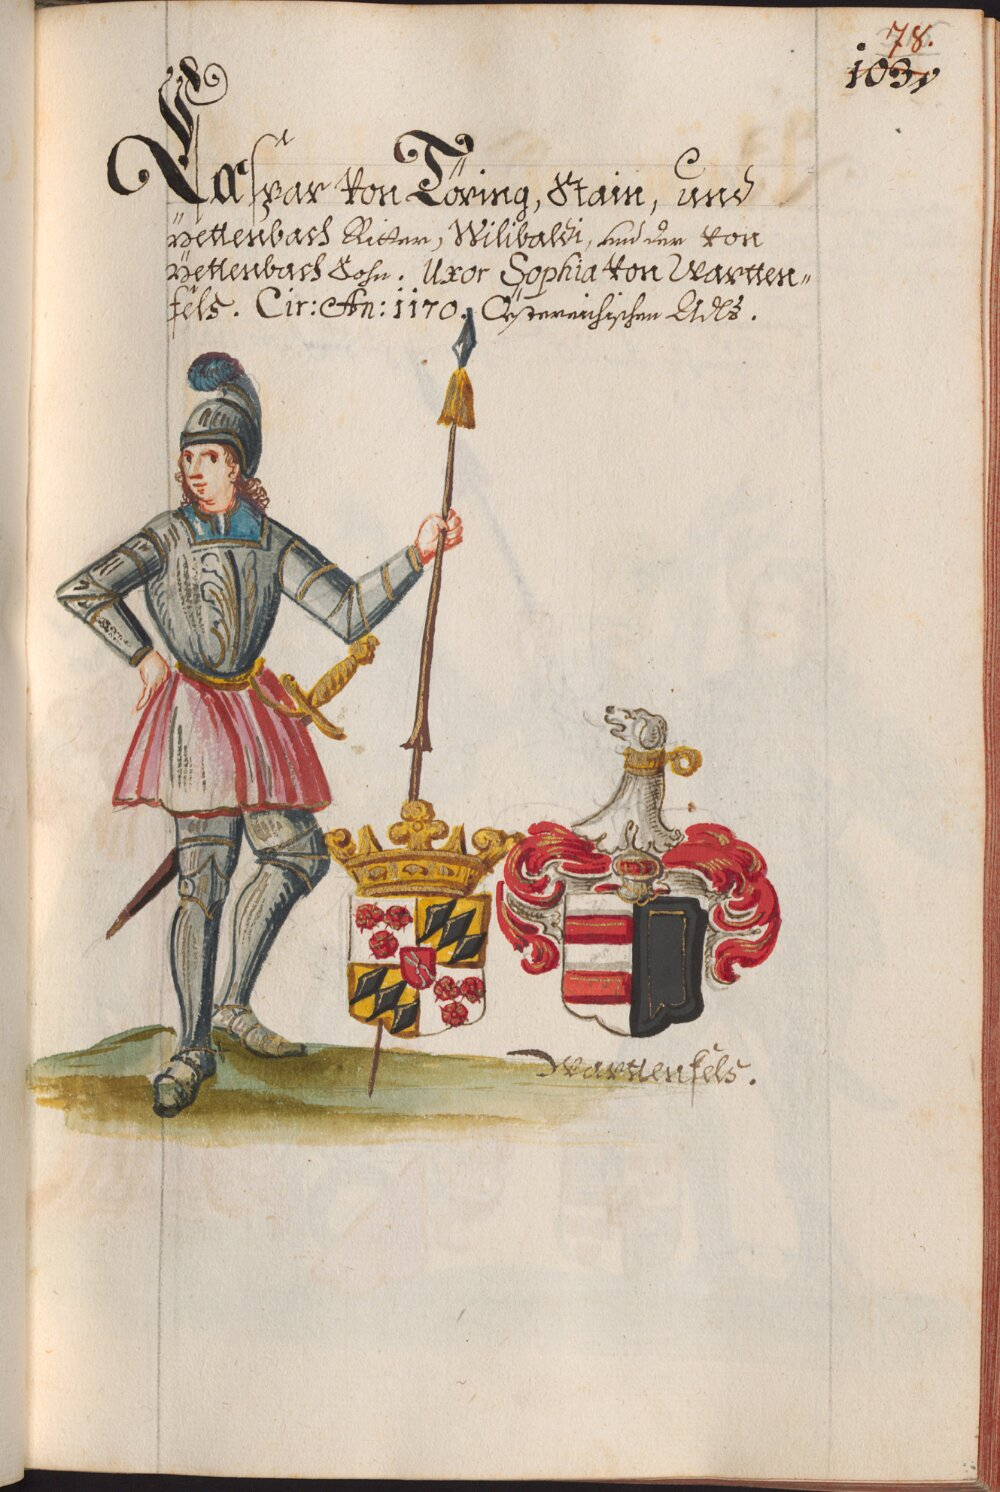 78.
103
Caspar von Töring, Stain, und
Pettenbach Ritter, Wilibaldi, und der von
Pettenbach Sohn. Uxor Sophia von Wartten-
fels. Cir: An: 1170. Össtereichischen Adls.
Warttenfels.